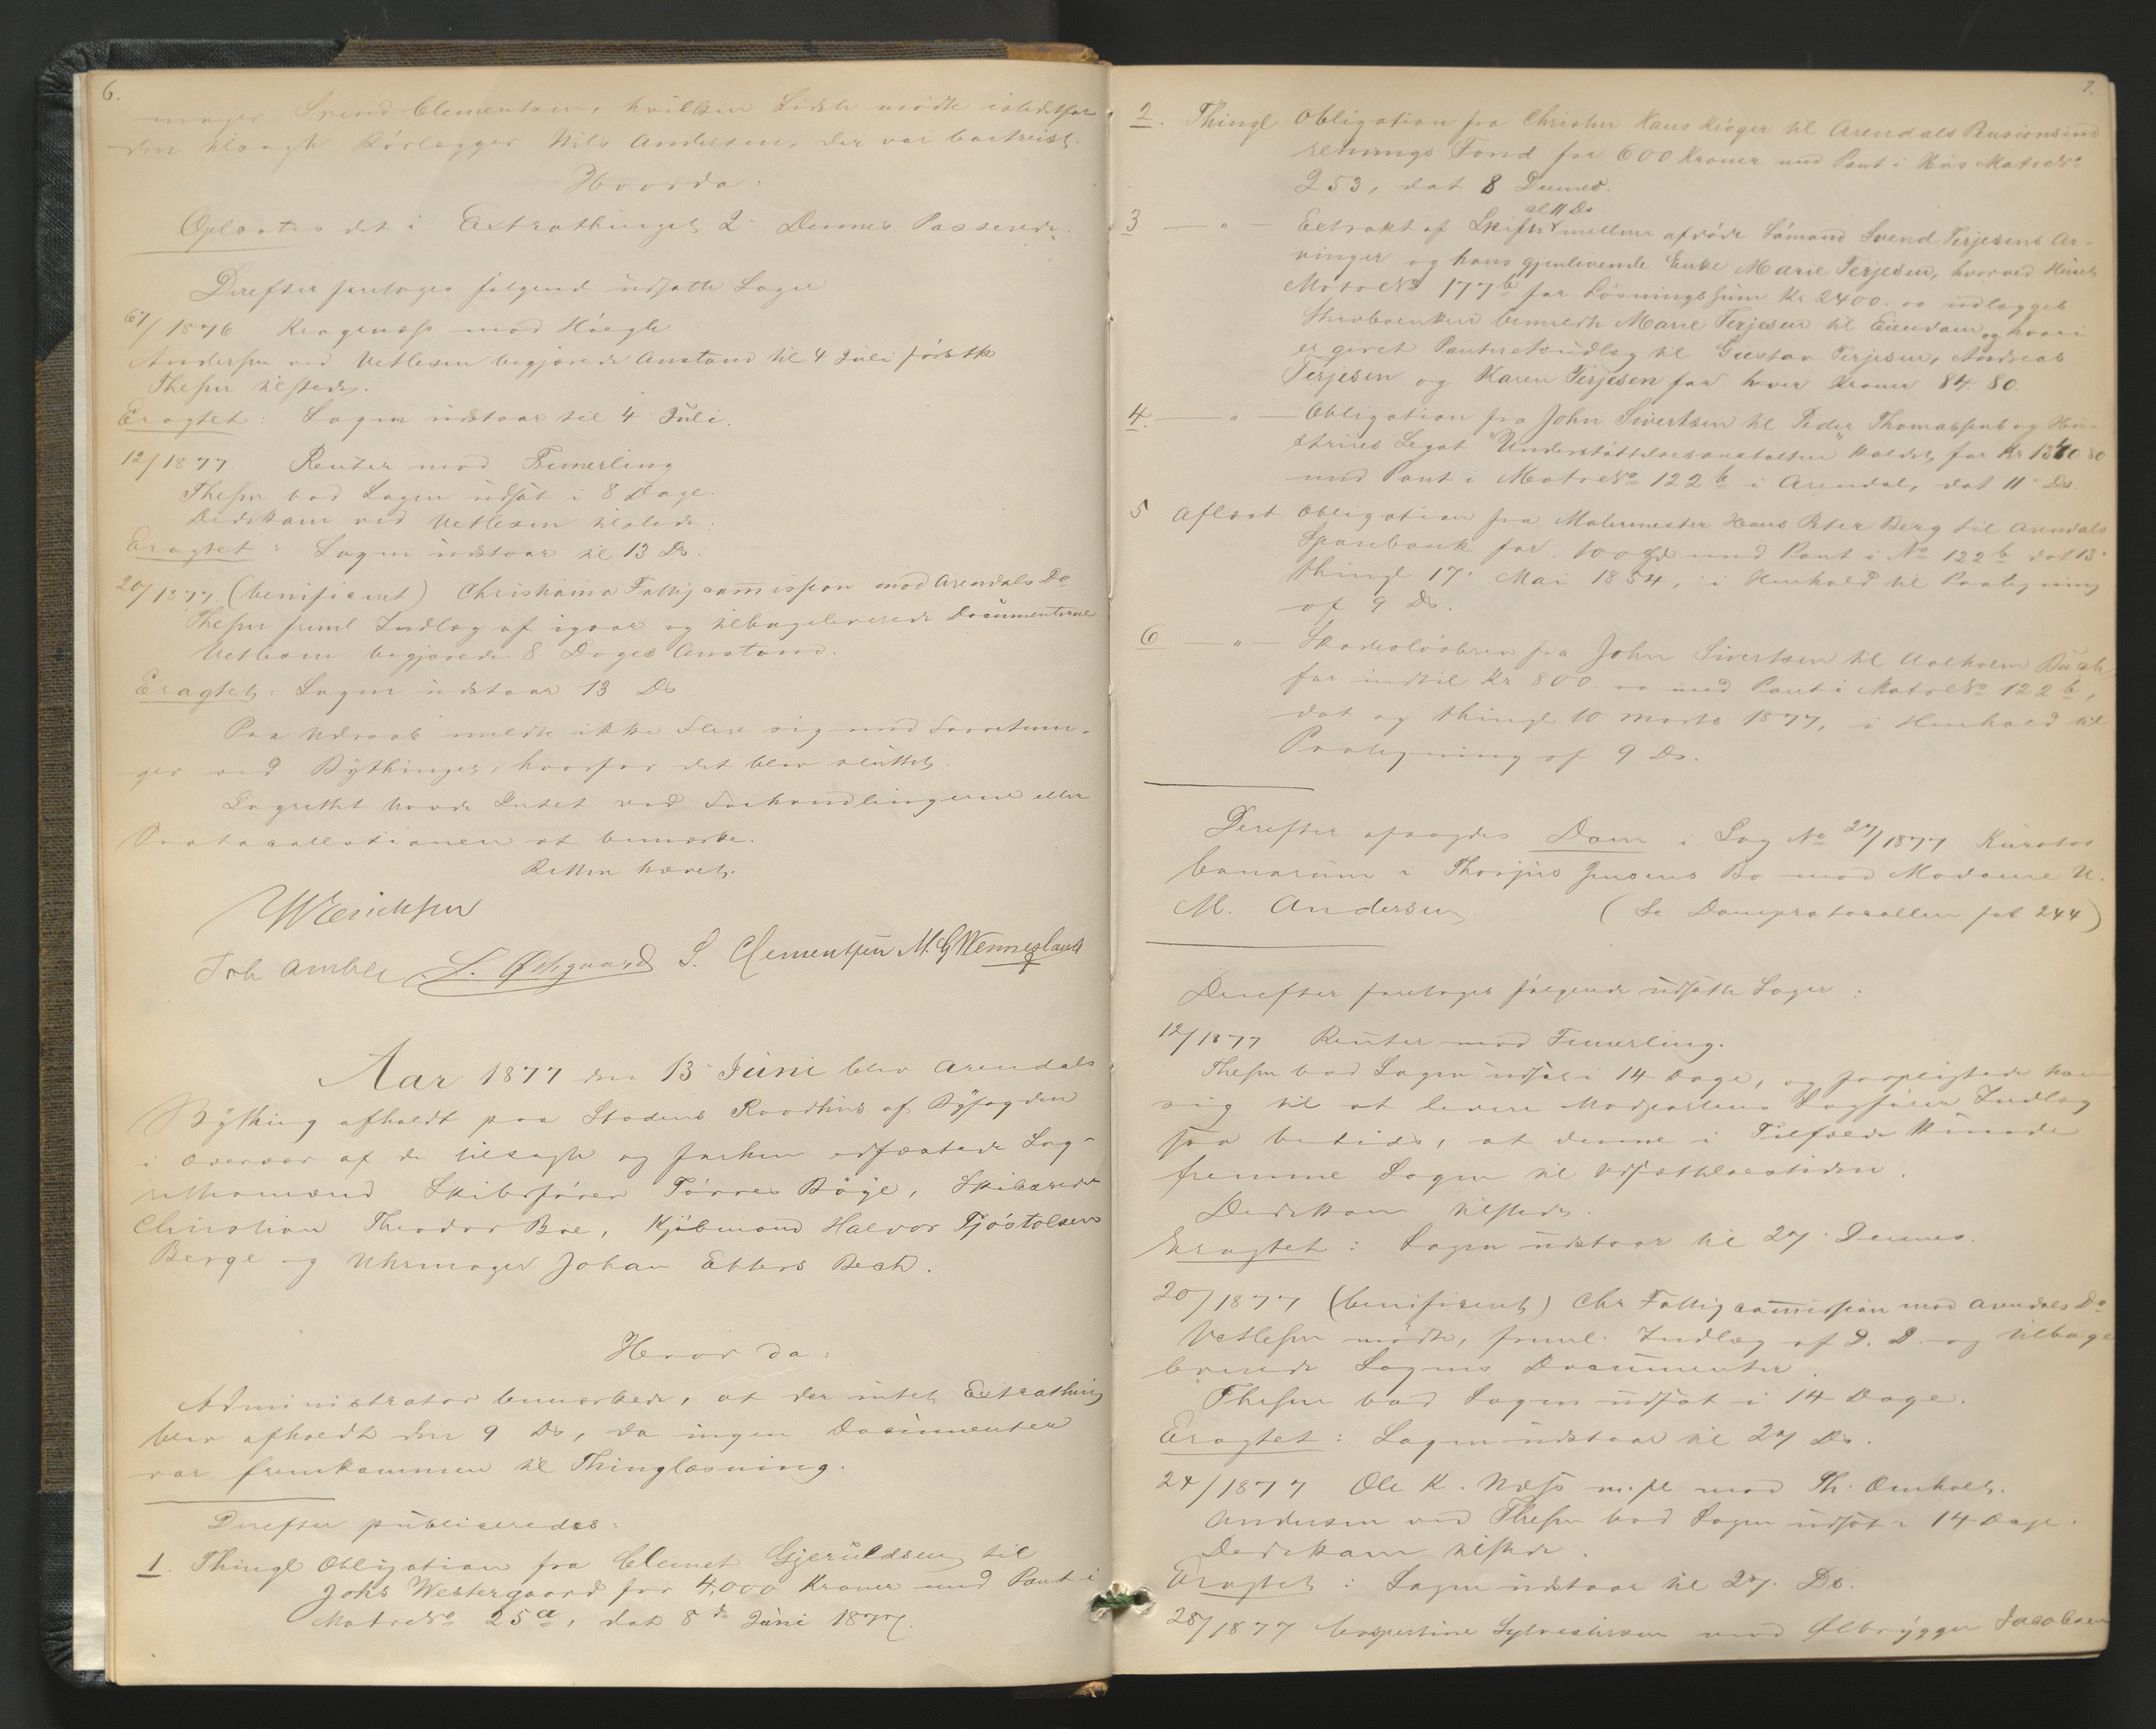 6.
mager Svend Clementsen, hvilken Sidste mødte istedetfor
den tilsagte Rørlægger Nils Andersen, der var bortreist.
Hvorda:
Oplæstes det i Extrathinget 2 Dennes Passerede.
Derefter foretoges følgende udsatte Sager
67/1876 Kragenæss mod Høegh
Anderssen ved Vetlesen begjærede Anstand til 4 Juli førstk
Thesen tilstede.
Eragtet: Sagen udstaar til 4 Juli.
12/1877. Reuter mod Fimerling
Thesen bad Sagen udsat i 8 Dage.
Dedekam ved Vetlesen tilstede:
Eragtet: Sagen udstaar til 13 Ds.
20/1877. (benificeret) Christiania Fattigcommission mod Arendals Do
Thesen freml Indlæg af igaar og tilbageleverede Documenterne
Vetlesen begjærede 8 Dages Anstand.
Eragtet: Sagen udstaar 13 Ds
Paa Udraab meldte ikke Flere sig med Forretnin-
ger ved Bythinget, hvorfor det blev sluttet.
Lagrettet havde Intet ved Forhandlingerne eller
Protocollationen at bemærke.
Retten hævet.
W Erichsen
Joh Amble L. Østgaard S. Clementsen M. G Wennesland
Aar 1877 den 13 Juni blev Arendals
Bything afholdt paa Stadens Raadhus af Byfogden
i Overvær af de tilsagte og forhen edfæstede Lag-
rettesmænd Skibsfører Tørres Bøye, Skibsreder
Christian Theodor Boe, Kjøbmand Halvor Tjøstolsen
Berge og Uhrmager Johan Ehlers Bech.
Hvor da:
Administrator bemærkede, at der intet Extrathing
blev afholdt den 9 Ds, da ingen Documenter
var fremkommen til Thinglæsning.
Derefter publiceredes:
1. Thingl Obligation fra Clemet Gjeruldsen til
Johs Westergaard for 4,000 Kroner med Pant i
Matr No 25a, dat 8de Juni 1877.
7.
2. Thingl Obligation fra Christen Hans Krøger til Arendals Pensionsind
retnings Fond for 600 Kroner med Pant i Hus Matr No
253, dat 8 Dennes.
3 — " — Extrakt af Skifte al 11 Ds mellem afdøde Sømand Svend Terjesens Ar-
vinger og hans gjenlevende Enke Marie Terjesen, hvorved Huset
Matr No 177b for Løsningssum Kr 2400.00 udlægges
Skrobenken bemeldte Marie Terjesen til Eiendom og hvori
er givet Panteretsudlæg til Gustav Terjesen, Andreas
Terjesen og Karen Terjesen for hver Kroner 84.80.
4. — " — Obligation fra John Sivertsen til Peder Thomassens og Hu-
strues Legat "Understøttelsesanstalten" kaldet, for Kr 1340 80
med Pant i Matr No 122b i Arendal, dat 11 Ds.
5 Aflæst Obligation fra Malermester Hans Peter Berg til Arendals
Sparebank for 100 Spd med Pant i No 122b dat 13
thingl 17 Mai 1854, i Henhold til Paategning
af 9 Ds.
6 — " — Skadesløsbrev fra John Sivertsen til Aalholm Buch
for indtil Kr 800.00 med Pant i Matr No 122b,
dat og thingl 10 Marts 1877, i Henhold til
Paategning af 9 Ds.
Derefter afsagdes Dom i Sag No 27/1877 Kurator
bonorum i Thorjus Jensens Bo mod Madame N.
M. Andersen (Se Domprotocollen fol 244)
Derefter foretoges følgende udsatte Sager:
12/1877 Reuter mod Fimerling.
Thesen bad Sagen udsat i 14 Dage, og forpligtede han
sig til at levere Modpartens Sagfører Indlæg
saa betids, at denne i Tilfælde kunde
fremme Sagen til Udsættelsestiden.
Dedekam tilstede.
Eragtet: Sagen udstaar til 27 Dennes.
20/1877 (benificeret) Chr Fattigcommission mod Arendals Do
Vetlesen mødte, freml. Indlæg af D. D. og tilbage
leverede Sagens Documenter.
Thesen bad Sagen udsat i 14 Dage.
Eragtet: Sagen udstaar til 27 Ds.
24/1877 Ole K. Næss m. fl mod Th. Omholt.
Andersen ved Thesen bad Sagen udsat i 14 Dage.
Dedekam tilstede.
Eragtet: Sagen udstaar til 27. Ds.
28/1877 Sylvestersen mod Ølbrygger Jacobsen